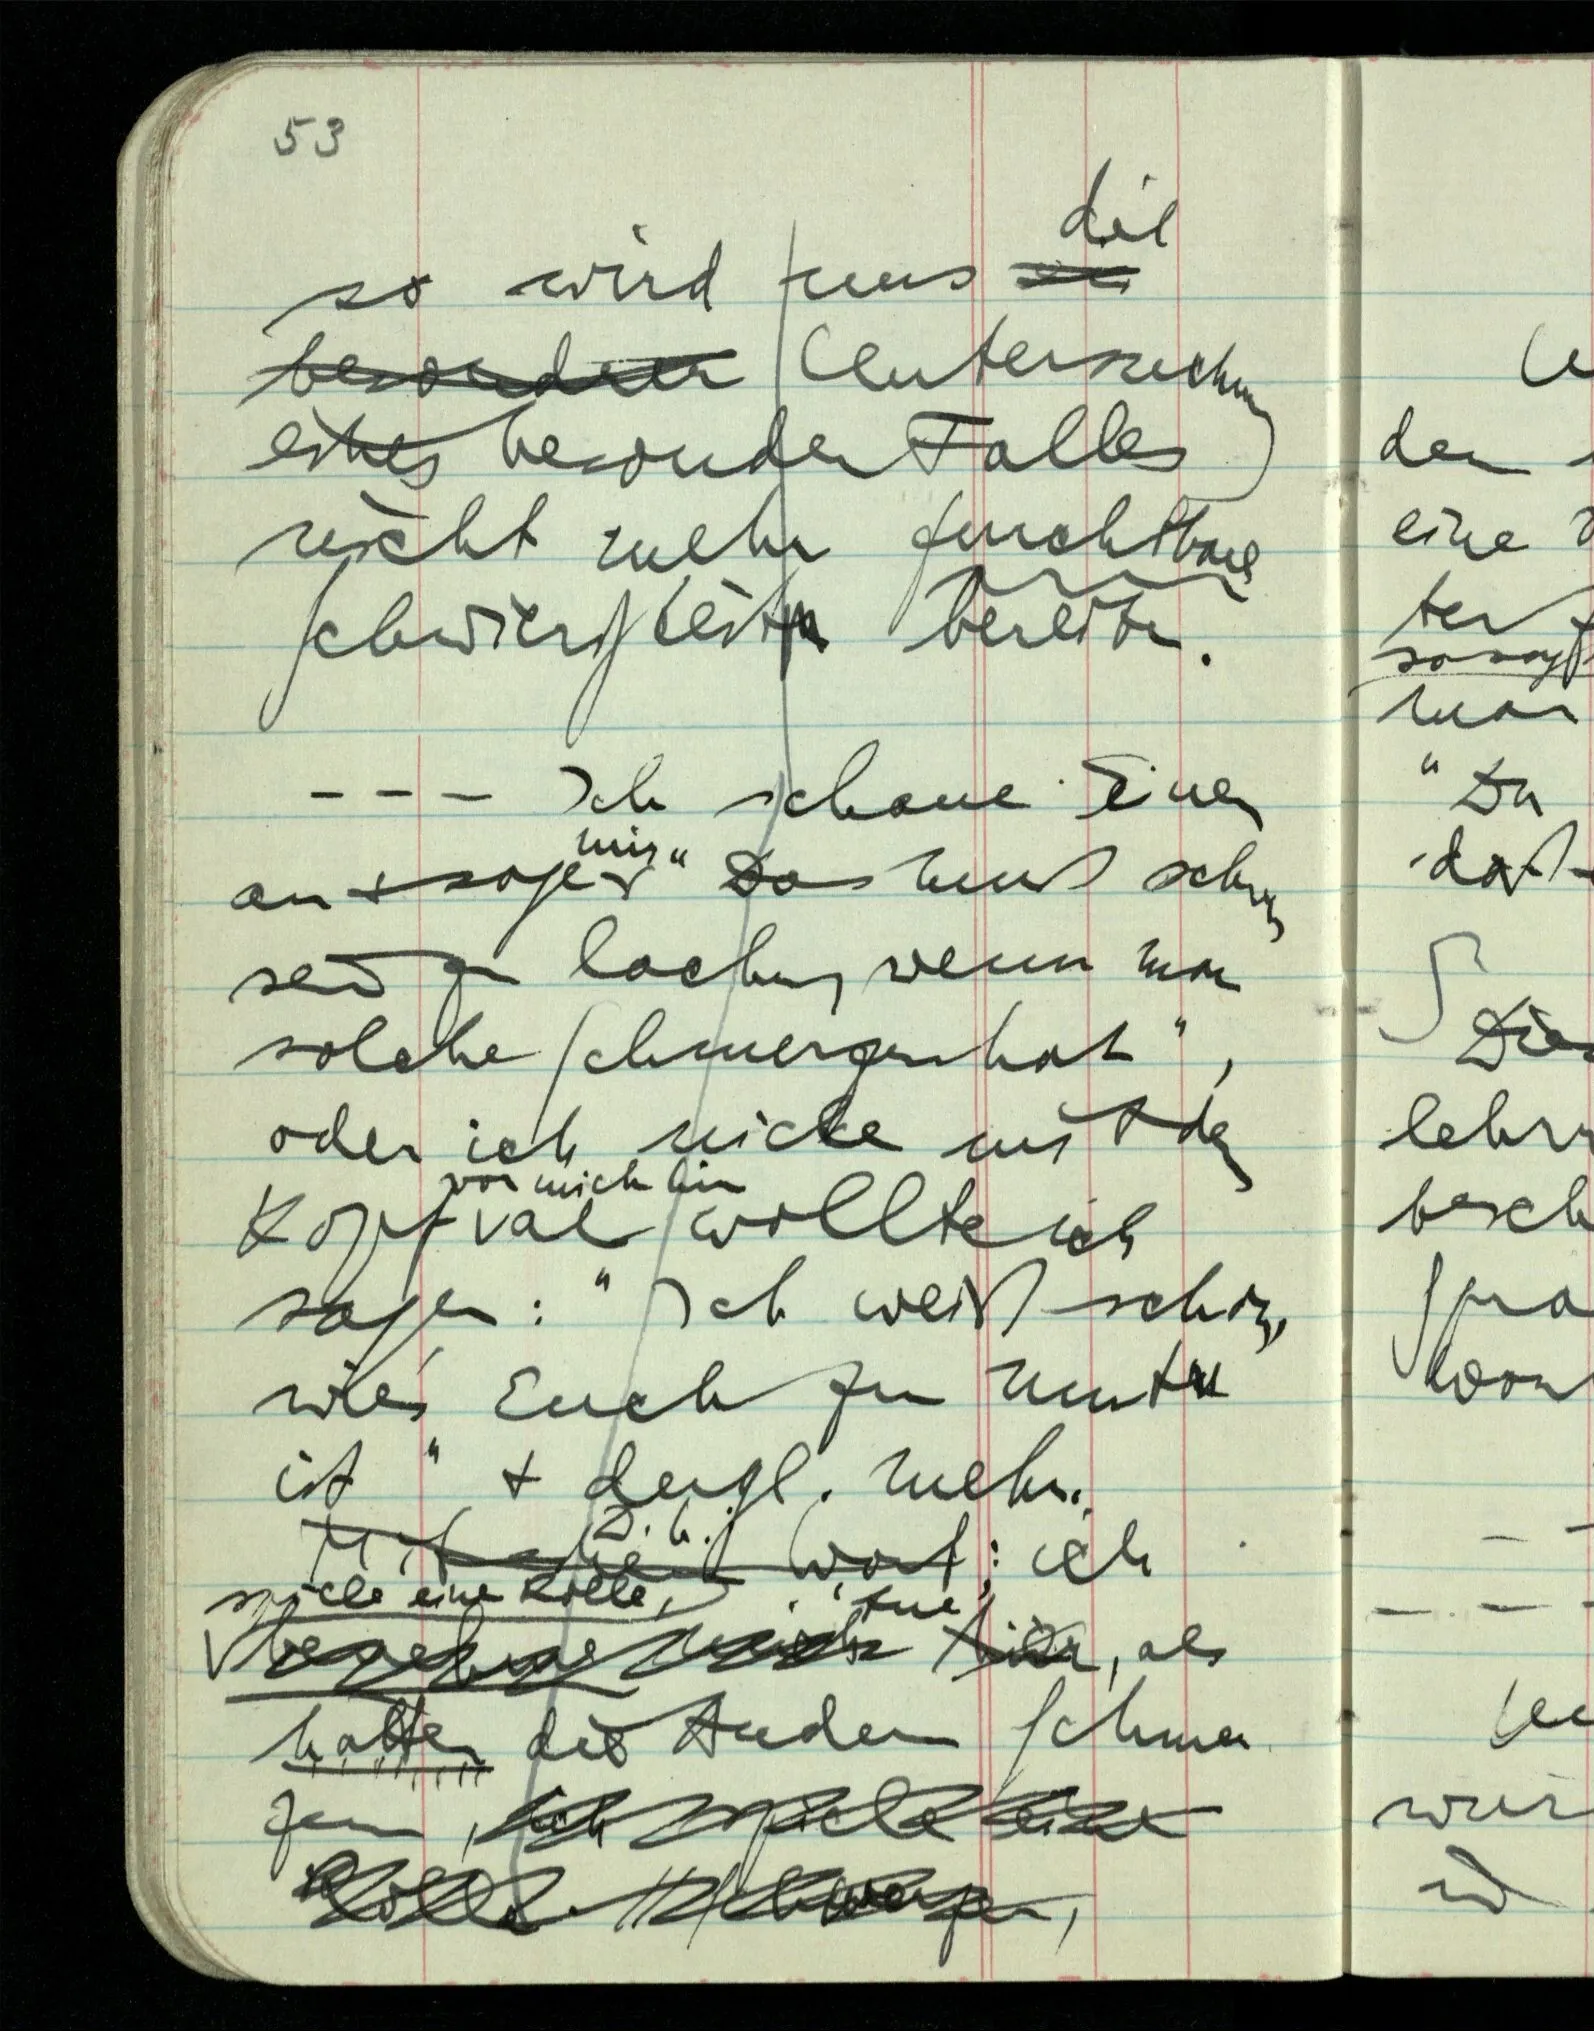 53
die
so wird uns
besonderer Untersuchung
eines besondern Falles
nicht mehr furchtbare
Schwierigkeiten bereiten.
– – – Ich schaue Einen
mir
an + sage "Das muß schwer
sein zu lachen, wenn man
solche Schmerzen hat",
oder ich nicke mit dem
vor mich hin
Kopf wollte ich
sagen: "Ich weiß schon,
wie's Euch zu mute
ist" + dergl. mehr.
D.h.
Mit Wort: ich
spiele eine Rolle,
tue
benehme mich, als
hätten die Andern Schmer
zen, ich spiele eine
Rolle.
den
eine
ter
man
"Du
daß
lehr
besch
wür